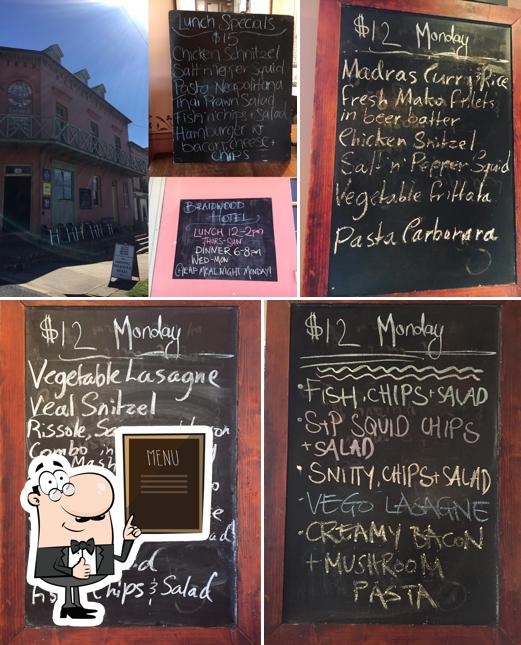 Lunch Specials
$15
Chicken Schnitzel
Salt n Pepper Squid
Pasta Neapolitana
Thai Prawn Salad
Fish n chips + Salad
Hamburger w
bacon, cheese +
chips
BRAIDWOOD
HOTEL
LUNCH 12-2pm
THURS-SUN
DINNER 6-8pm
WED-MON
CHEAP MEAL NIGHT MONDAY!
$12 Monday
Madras Curry & Rice
Fresh Mako fillets
in beer batter
Chicken Snitzel
Salt 'n' Pepper Squid
Vegetable frittata
Pasta Carbonara
$12 Monday
Vegetable Lasagne
Veal Snitzel
Rissole,
Combo in
Mash
MENU
Chips & Salad
$12 Monday
• FISH, CHIPS + SALAD
• S+P SQUID CHIPS
+ SALAD
• SNITTY, CHIPS + SALAD
• VEGO LASAGNE
• CREAMY BACON
+ MUSHROOM
PASTA